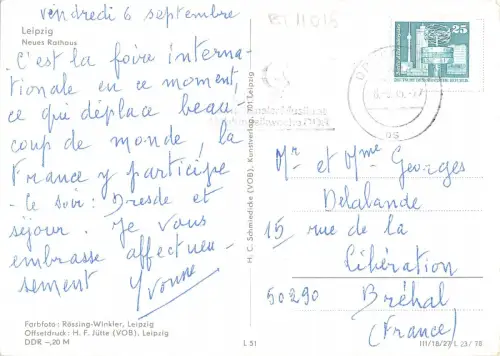 vendredi 6 septembre
Leipzig
Neues Rathaus
C'est la foire interna-
tionale en ce moment,
ce qui déplace beau-
coup de monde, la
France y participe
- Ce soir : Dresde et
séjour. Je vous
embrasse affectueu-
sement Yvonne
Farbfoto: Rössing-Winkler, Leipzig
Offsetdruck: H. F. Jütte (VOB), Leipzig
DDR –,20 M
L 51
H. C. Schmiedicke (VOB), Kunstverlag, 701 Leipzig
BT 11015
25
DDR
Mr et Mme Georges
Delalande
15 rue de la
Libération
50290 Bréhal
(France)
III/18/27 L 23/78